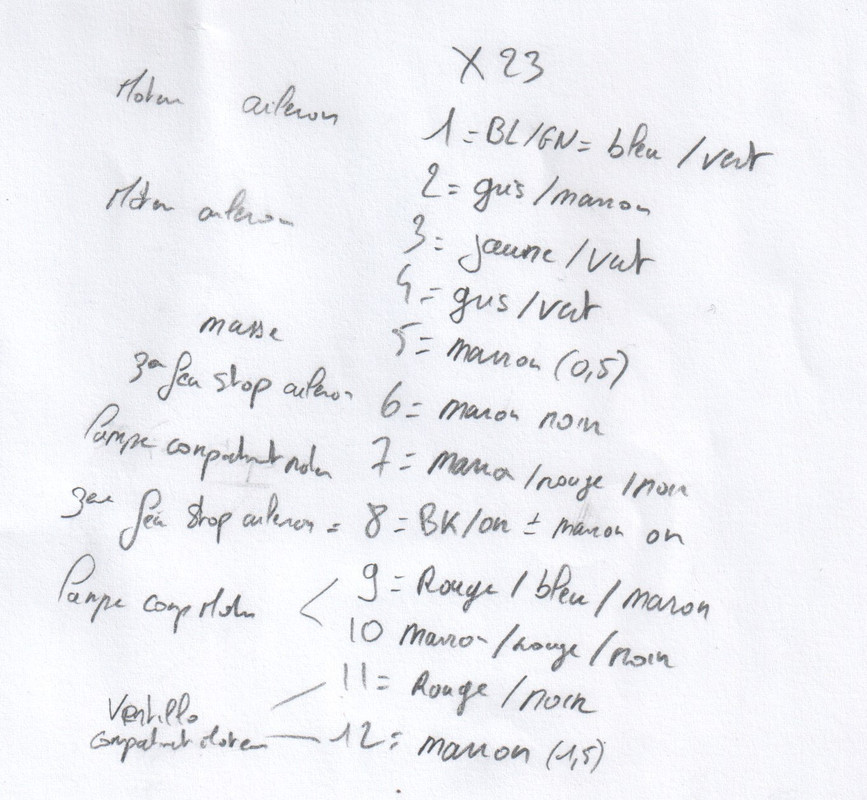 X 23
Moteur aileron 1 = BL/GN = bleu / vert
Moteur aileron 2 = gris / marron
3 = jaune / vert
4 = gris / vert
masse 5 = marron (0,5)
3em feu stop aileron 6 = maron noir
Pampe compatiment moteur 7 = marron / rouge / noir
3em feu stop aileron = 8 = BK/or ± maron or
Pampe comp Moteur < 9 = Rouge / bleu / maron
10 marron / rouge / noir
11 = Rouge / noir
Ventillo
compatiment Moteur 12 = marron (1,5)